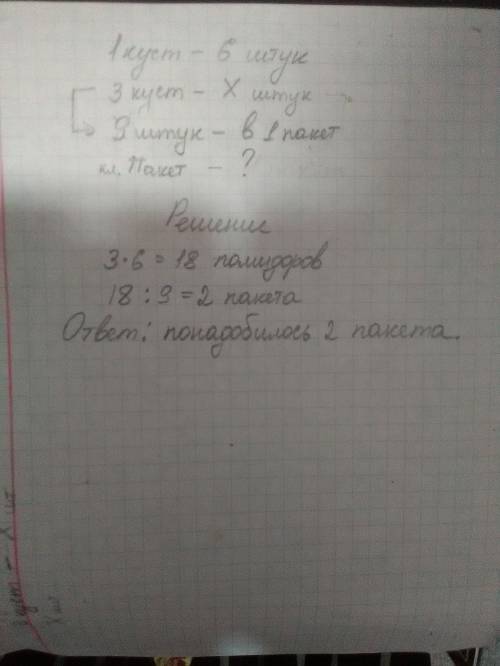 1 куст - 6 штук
3 куст - X штук
9 штук - в 1 пакет
кл. Пакет - ?
Решение
3·6 = 18 помидоров
18 : 9 = 2 пакета
Ответ: понадобилось 2 пакета.
куст - X шт
X шт